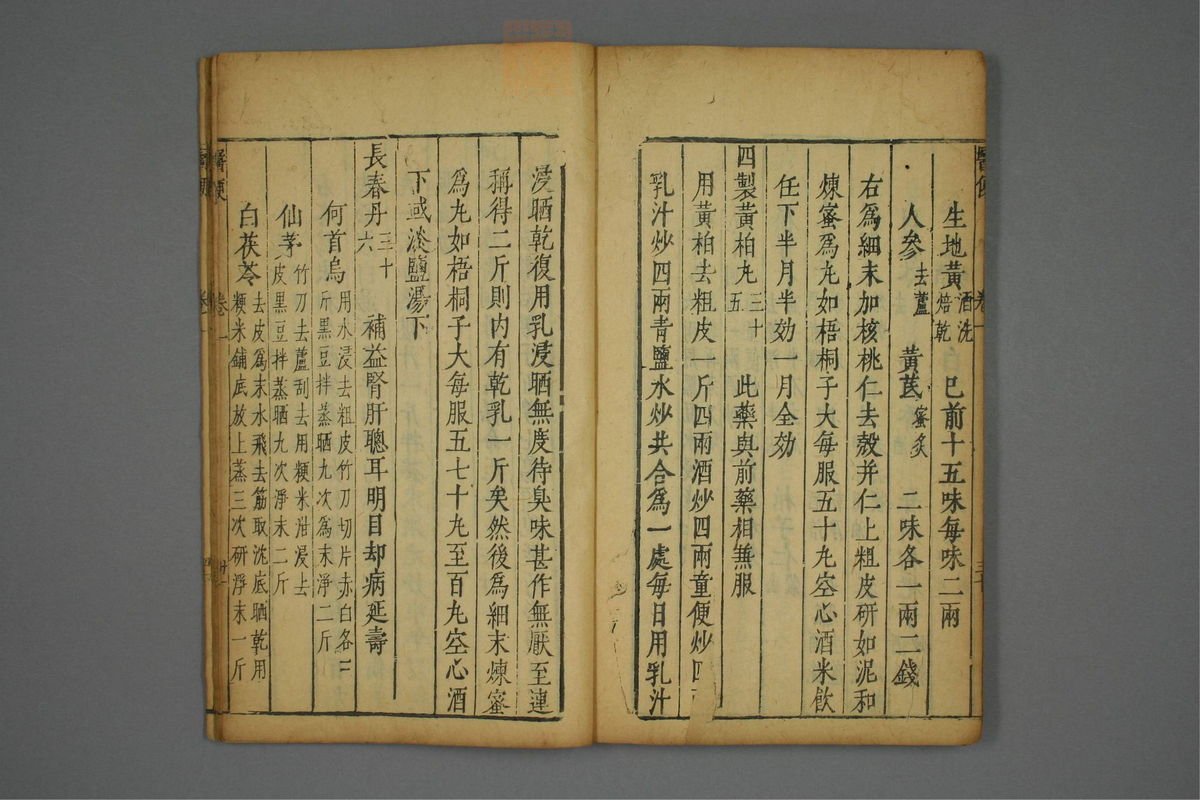 生地黃酒洗焙乾 已前十五味每味二兩
人參去蘆 黃芪蜜炙 二味各一兩二錢
右爲細末加核桃仁去殼并仁上粗皮研如泥和
煉蜜爲丸如梧桐子大每服五十丸空心酒米飲
任下半月半効一月全効
四製黃柏丸三十五 此藥與前藥相無服
用黃柏去粗皮一斤四兩酒炒四兩童便炒四
乳汁炒四兩青鹽水炒共合爲一處每日用乳汁
浸晒乾復用乳浸晒無度待臭味甚作無厭至連
稱得二斤則内有乾乳一斤矣然後爲細末煉蜜
爲丸如梧桐子大每服五七十丸至百丸空心酒
下或淡鹽湯下
長春丹三十六 補益腎肝聰耳明目却病延壽
何首烏用水浸去粗皮竹刀切片赤白各二斤黑豆拌蒸晒九次爲末淨二斤
仙茅竹刀去蘆刮去用粳米泔浸去皮黑豆拌蒸晒九次淨末二斤
白茯苓去皮爲末水飛去筋取沈底晒乾用粳米鋪底放上蒸三次研淨末一斤
醫便
卷一